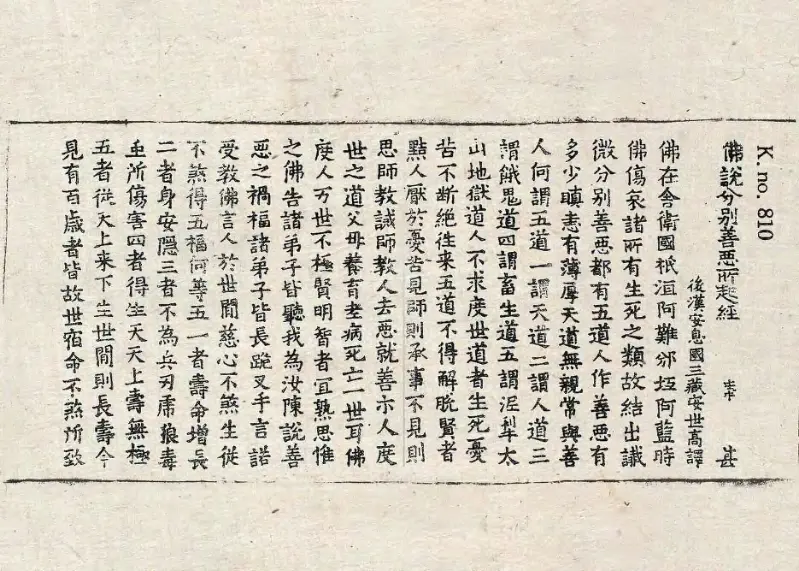 K. no. 810
佛說分別善惡所起經 甚
後漢安息國三藏安世高譯
佛在舍衛國祇洹阿難邠坻阿藍時
佛傷哀諸所有生死之類故結出讖
微分別善惡都有五道人作善惡有
多少瞋恚有薄厚天道無親常與善
人何謂五道一謂天道二謂人道三
謂餓鬼道四謂畜生道五謂泥犁太
山地獄道人不求度世道者生死憂
苦不斷絕往来五道不得解脫賢者
黠人厭於憂苦見師則承事不見則
思師教誡師教人去惡就善示人度
世之道父母養育老病死亡一世耳佛
度人万世不極賢明智者宜熟思惟
之佛告諸弟子皆聽我為汝陳說善
惡之禍福諸弟子皆長跪叉手言諾
受教佛言人於世閒慈心不煞生從
不煞得五福何等五一者壽命增長
二者身安隱三者不為兵刃虎狼毒
虫所傷害四者得生天天上壽無極
五者從天上来下生世閒則長壽今
見有百歲者皆故世宿命不煞所致